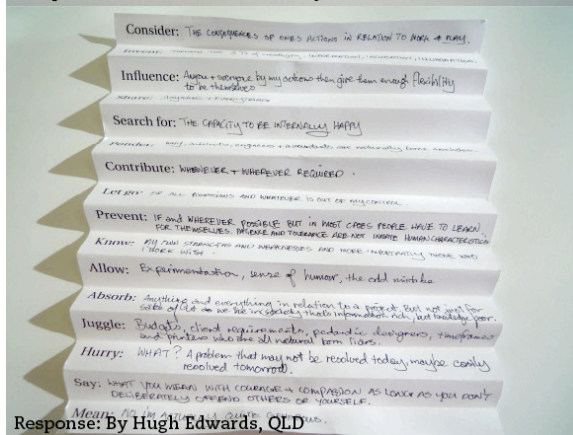 Consider: THE CONSEQUENCES OF ONES ACTIONS IN RELATION TO WORK + PLAY.
Invent:
Influence: Anyone + everyone by my actions then give them enough flexibility
to be themselves
Share:
Search for: THE CAPACITY TO BE INTERNALLY HAPPY
Ponder: are naturally born
Contribute: WHENEVER + WHEREVER REQUIRED.
Let go: OF ALL AND WHATEVER IS OUT OF MY CONTROL
Prevent: IF and WHEREVER POSSIBLE BUT IN MOST CASES PEOPLE HAVE TO LEARN
FOR THEMSELVES. PATIENCE AND TOLERANCE ARE NOT INNATE HUMAN CHARACTERISTICS
Know: MY OWN STRENGTHS AND WEAKNESSES AND MORE IMPORTANTLY THOSE WHO
I WORK WITH.
Allow: Experimentation, sense of humour, the odd mistake
Absorb: Anything and everything in relation to a project. But not just for
sake of it as we live in society that's information rich, but knowledge poor.
Juggle: Budgets, client requirements, pedantic designers, timeframes
and printers who are all natural born liars.
Hurry: WHAT? A problem that may not be resolved today, maybe easily
resolved tomorrow.
Say: WHAT YOU MEAN WITH COURAGE + COMPASSION AS LONG AS YOU DON'T
DELIBERATELY OFFEND OTHERS OR YOURSELF.
Mean: NO I'M ACTUALLY QUITE GENEROUS.
Response: By Hugh Edwards, QLD